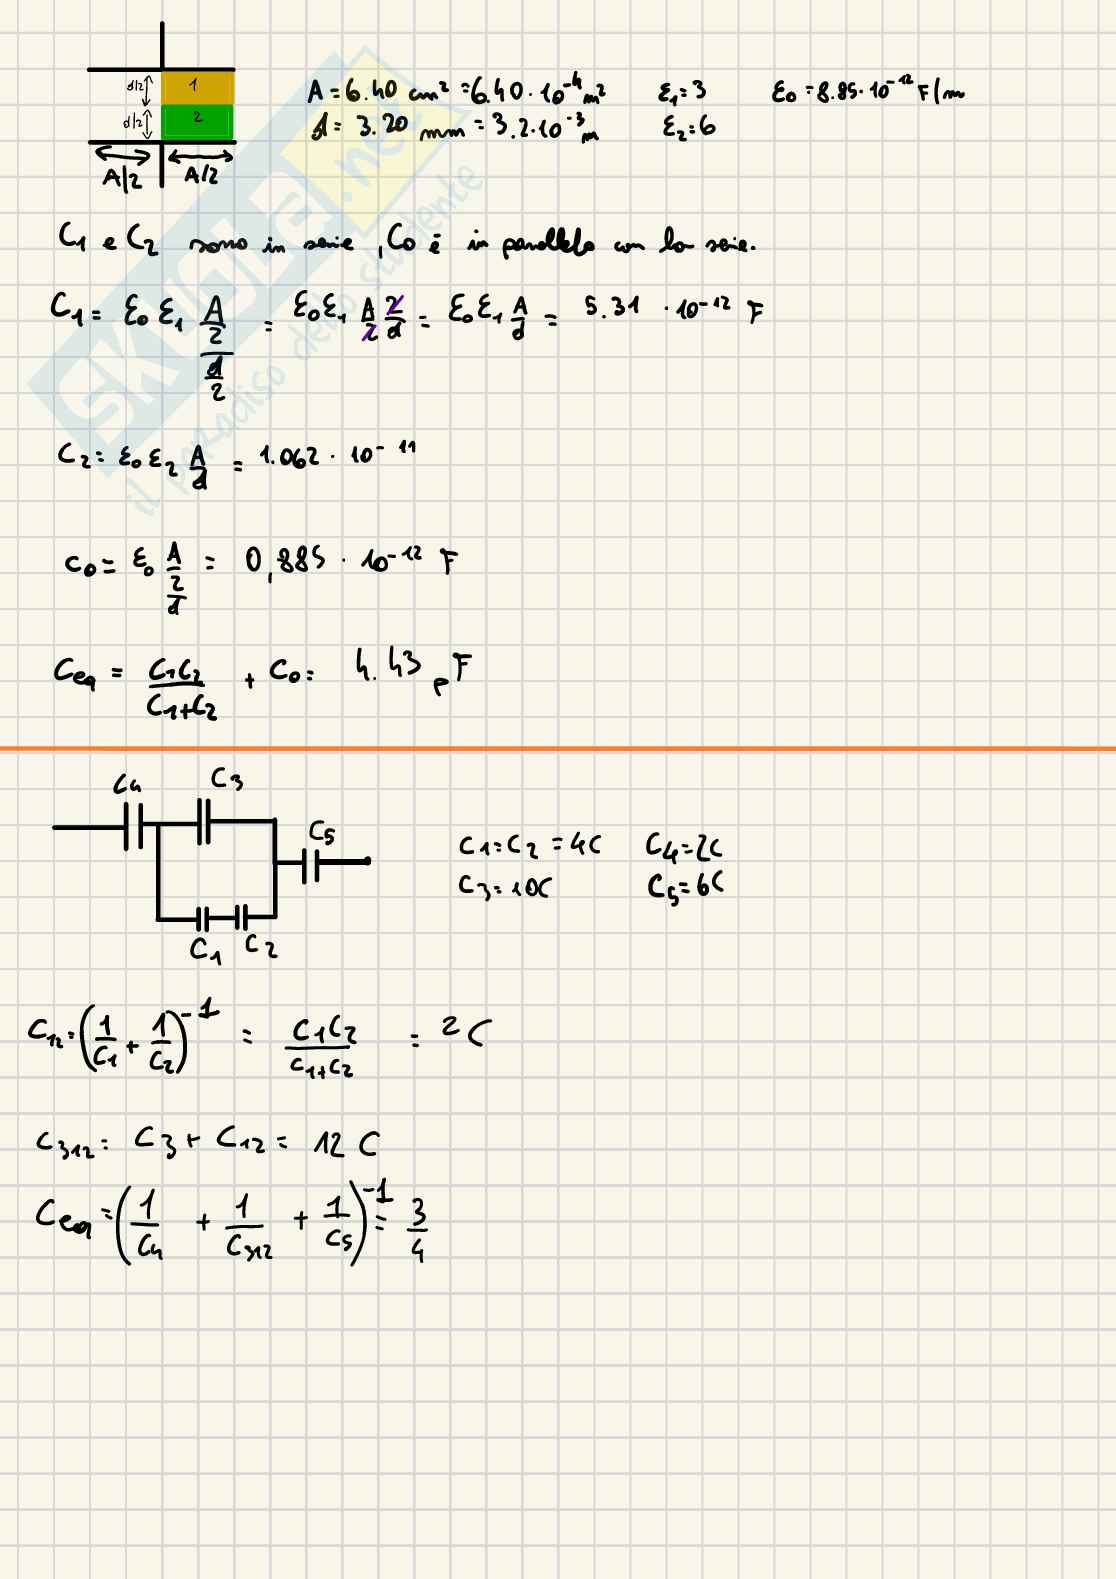 d/2 1
d/2 2
A/2 A/2
A = 6.40 cm² = 6.40 · 10⁻⁴ m² ε₁ = 3 ε₀ = 8.85 · 10⁻¹² F/m
d = 3.20 mm = 3.2 · 10⁻³ m ε₂ = 6
SKUOLA.net
il paradiso dello studente
C₁ e C₂ sono in serie, C₀ è in parallelo con la serie.
C₁ = ε₀ ε₁ (A/2)/(d/2) = ε₀ ε₁ A/2 2/d = ε₀ ε₁ A/d = 5.31 · 10⁻¹² F
C₂ = ε₀ ε₂ A/d = 1.062 · 10⁻¹¹
C₀ = ε₀ A/2/d = 0,885 · 10⁻¹² F
Ceq = C₁C₂/(C₁+C₂) + C₀ = 4.43 pF
C₄ C₃
C₅
C₁ C₂
C₁ = C₂ = 4C C₄ = 2C
C₃ = 10C C₅ = 6C
C₁₂ = (1/C₁ + 1/C₂)⁻¹ = C₁C₂/(C₁+C₂) = 2C
C₃₁₂ = C₃ + C₁₂ = 12 C
Ceq = (1/C₄ + 1/C₃₁₂ + 1/C₅)⁻¹ = 3/4